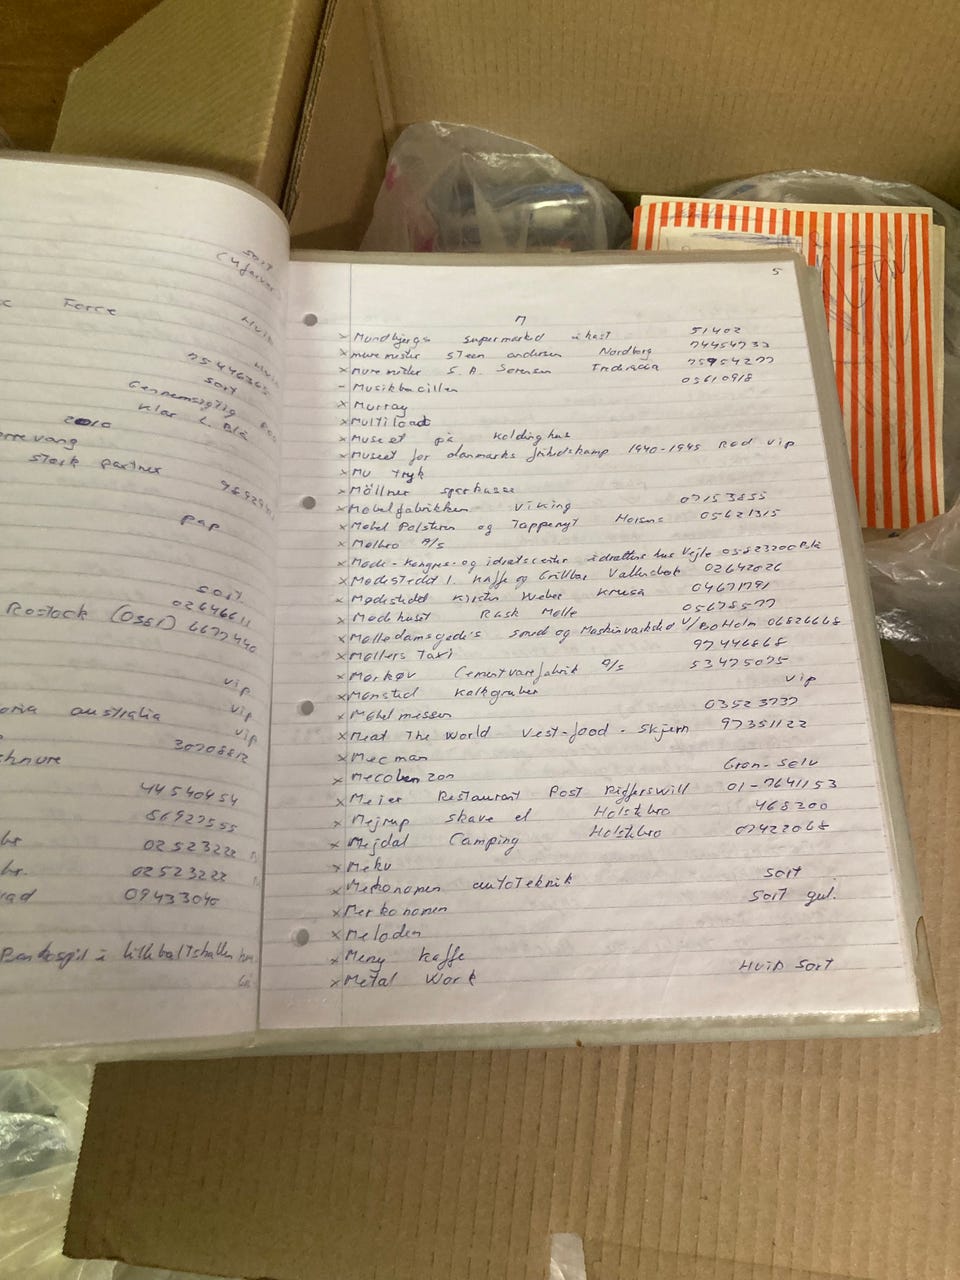 sort
Force
Hvid
75446365
sort
Gennemsigtig
Klar L. Blå
2010
stork partner
pap
sort
02646611
Rostock (Ossi) 6677440
vip
vip
oria australia
vip
30708812
hnure
44540454
86927555
hr 02523222
hr. 02523222
rad 09433040
5
M
x Mundbjergs supermarked ikast 51402
x muremester Steen andersen Nordborg 74454733
x muremester S. A. Sørensen Fredericia 75954277
- Musikbacillen 05610918
x Murray
x Multiload
x Museet på Koldinghus
x Museet for danmarks frihedskamp 1940-1945 Rød vip
x Mu Tryk
x Möllner sparkasse
x Møbelfabrikken Viking 07153855
x Møbel Polstrer og Tappenyt Horsens 05621315
x Mølbro A/S
x Møde-Kongres-og idrætscenter idrættens hus Vejle 05823200 Blå
x Mødestedet I. Kaffe og Grillbar Vallensbæk 02642026
x Mødestedet Kirsten Weber Kruså 04671791
x Mødehuset Rask Mølle 05678577
x Mølledamsgade's smed og Maskinværksted v/Bo Holm 06826668
x Møllers Taxi 97446868
x Mørkøv Cementvarefabrik A/S 53475075
x Mønsted Kalkgruber vip
x Møbelmessen 03523737
x Meat The World Vest-food-Skjern 97351122
x Mecman
x Mecobenzon Grøn-sølv
x Meier Restaurant Post Rifferswill 01-7641153
x Mejrup skave el Holstebro 468200
x Mejdal Camping Holstebro 07422068
x Meku
x Mekonomen autoteknik sort
x Merkonomen sort gul.
x Meloden
x Meny Kaffe
x Metal Work Hvid sort